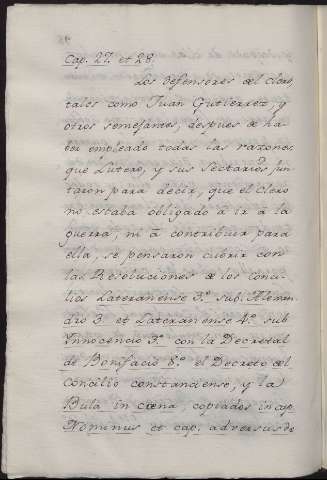 Cap. 27. et 28.
Los defensores del clero,
tales como Juan Gutierrez, y
otros semejantes, despues de ha-
ber empleado todas las razones
que Lutero, y sus Sectarios jun-
taron para decir, que el clero
no estaba obligado à ir à la
guerra, ni à contribuir para
ella, se pensaron cubrir con
las Resoluciones de los Conci-
lios Lateranense 3.º sub. Alexan-
dro 3. et Lateranense 4.º sub
Innocencio 3.º con la Decretal
de Bonifacio 8.º el Decreto del
Concilio constanciense, y la
Bula in cœna, copiados in cap.
Nominus et cap. adversus de